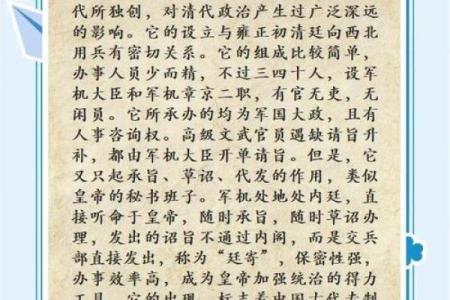 代所独创，对清代政治产生过广泛深远
的影响。它的设立与雍正初清廷向西北
用兵有密切关系。它的组成比较简单，
办事人员少而精，不过三四十人，设军
机大臣和军机章京二职，有官无吏，无
闲员。它所承办的均为军国大政，且有
人事咨询权。高级文武官员遇缺请旨升
补，都由军机大臣开单请旨。但是，它
又只起承旨、草诏、代发的作用，类似
皇帝的秘书班子。军机处地处内廷，直
接听命于皇帝，随时承旨，随时草诏办
理，发出的诏旨不通过内阁，而是交兵
部直接发出，称为“廷寄”，保密性强，
办事效率高，成为皇帝加强统治的得力
工具。它的出现，标志着中国古代专制